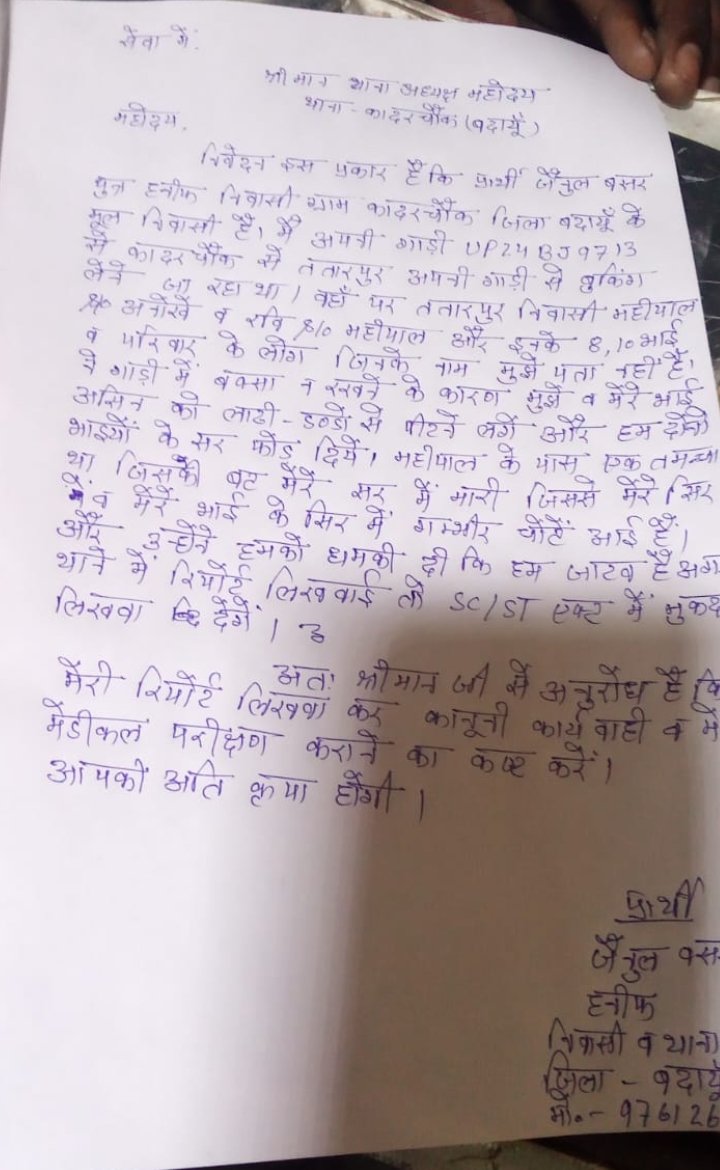 सेवा में:
श्रीमान थाना अध्यक्ष महोदय
थाना - कादरचौक (बदायूँ)
महोदय,
निवेदन इस प्रकार है कि प्रार्थी जैनुल बसर
पुत्र हनीफ निवासी ग्राम कादरचौक जिला बदायूँ के
मूल निवासी है, मैं अपनी गाड़ी UP24BJ9713
से कादरचौक से ततारपुर अपनी गाड़ी से बुकिंग
लेने जा रहा था। वहाँ पर ततारपुर निवासी महीपाल
S/o अनोखे व रवि S/o महीपाल और इनके 8,10 भाई
व परिवार के लोग जिनके नाम मुझे पता नहीं है,
ने गाड़ी में बक्सा न रखने के कारण मुझे व मेरे भाई
को लाठी-डण्डों से पीटने लगे और हम दोनों
भाइयों के सर फोड दिये। महीपाल के पास एक तमन्चा
था जिसकी बट मेरे सर में मारी जिससे मेरे सिर
में व मेरे भाई के सिर में गम्भीर चोटें आई हैं।
और उन्होंने हमको धमकी दी कि हम जाटव है अगर
थाने में रिपोर्ट लिखवाई तो SC/ST एक्ट में
लिखवा देंगे।
अतः श्रीमान जी से अनुरोध है कि
मेरी रिपोर्ट लिखवा कर कानूनी कार्यवाही व
मेडीकल परीक्षण कराने का कष्ट करें।
आपकी अति कृपा होगी।
प्रार्थी
जैनुल
हनीफ
निवासी व थाना
जिला - बदायूँ
मो.- 976126